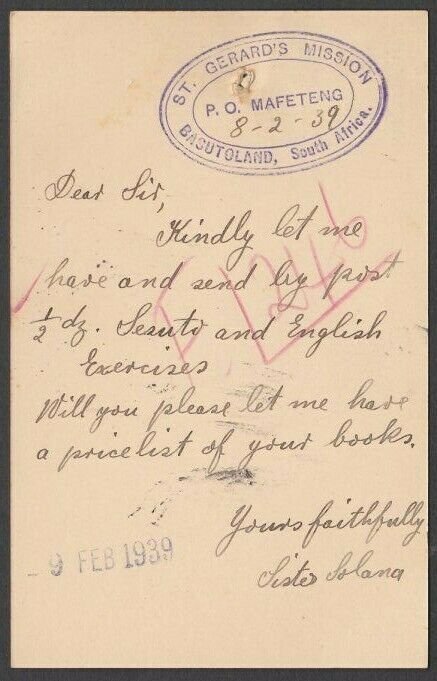 ST. GERARD'S MISSION
P. O. MAFETENG
8-2-39
BASUTOLAND, South Africa.
Dear Sir,
Kindly let me
have and send by post
½ dz. Sesuto and English
Exercises
Will you please let me have
a pricelist of your books.
Yours faithfully
Sister Solana
- 9 FEB 1939